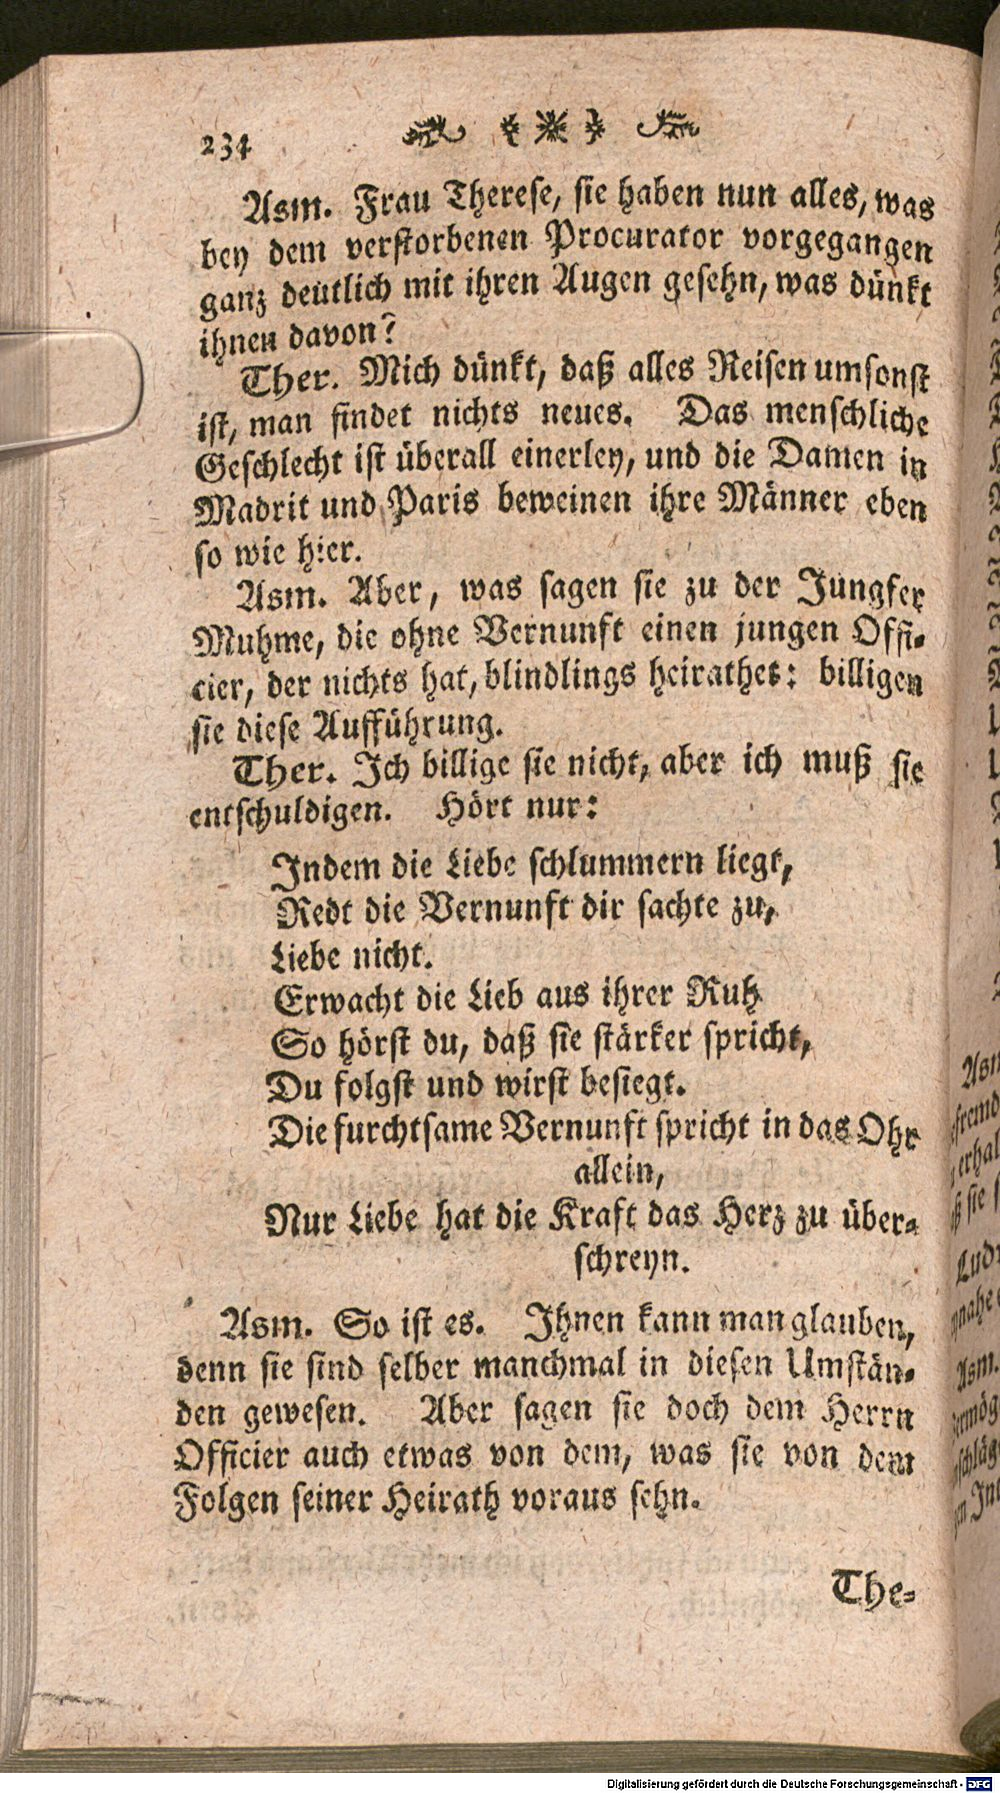 234
Asm. Frau Therese, sie haben nun alles, was
bey dem verstorbenen Procurator vorgegangen
ganz deutlich mit ihren Augen gesehn, was dünkt
ihnen davon?
Ther. Mich dünkt, daß alles Reisen umsonst
ist, man findet nichts neues. Das menschliche
Geschlecht ist überall einerley, und die Damen in
Madrit und Paris beweinen ihre Männer eben
so wie hier.
Asm. Aber, was sagen sie zu der Jungfer
Muhme, die ohne Vernunft einen jungen Offi-
cier, der nichts hat, blindlings heirathet: billigen
sie diese Aufführung.
Ther. Ich billige sie nicht, aber ich muß sie
entschuldigen. Hört nur:
Indem die Liebe schlummern liegt,
Redt die Vernunft dir sachte zu,
Liebe nicht.
Erwacht die Lieb aus ihrer Ruh
So hörst du, daß sie stärker spricht,
Du folgst und wirst besiegt.
Die furchtsame Vernunft spricht in das Ohr
allein,
Nur Liebe hat die Kraft das Herz zu über-
schreyn.
Asm. So ist es. Ihnen kann man glauben,
denn sie sind selber manchmal in diesen Umstän-
den gewesen. Aber sagen sie doch dem Herrn
Officier auch etwas von dem, was sie von dem
Folgen seiner Heirath voraus sehn.
The-
Digitalisierung gefördert durch die Deutsche Forschungsgemeinschaft - DFG